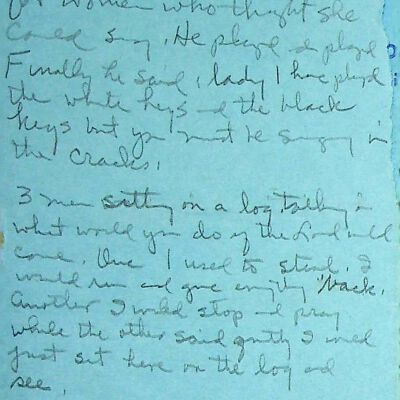 for women who thught she
could sing. He played & played
Finally he said, lady I have played
the white keys and the black
keys but you must be singing in
the cracks.
3 men sitting on a log talking
what would you do if the Lord
come. One I used to steal. I
would run and give everything back.
Another I would stop and pray
while the other said I would
just sit here on the log and
see.